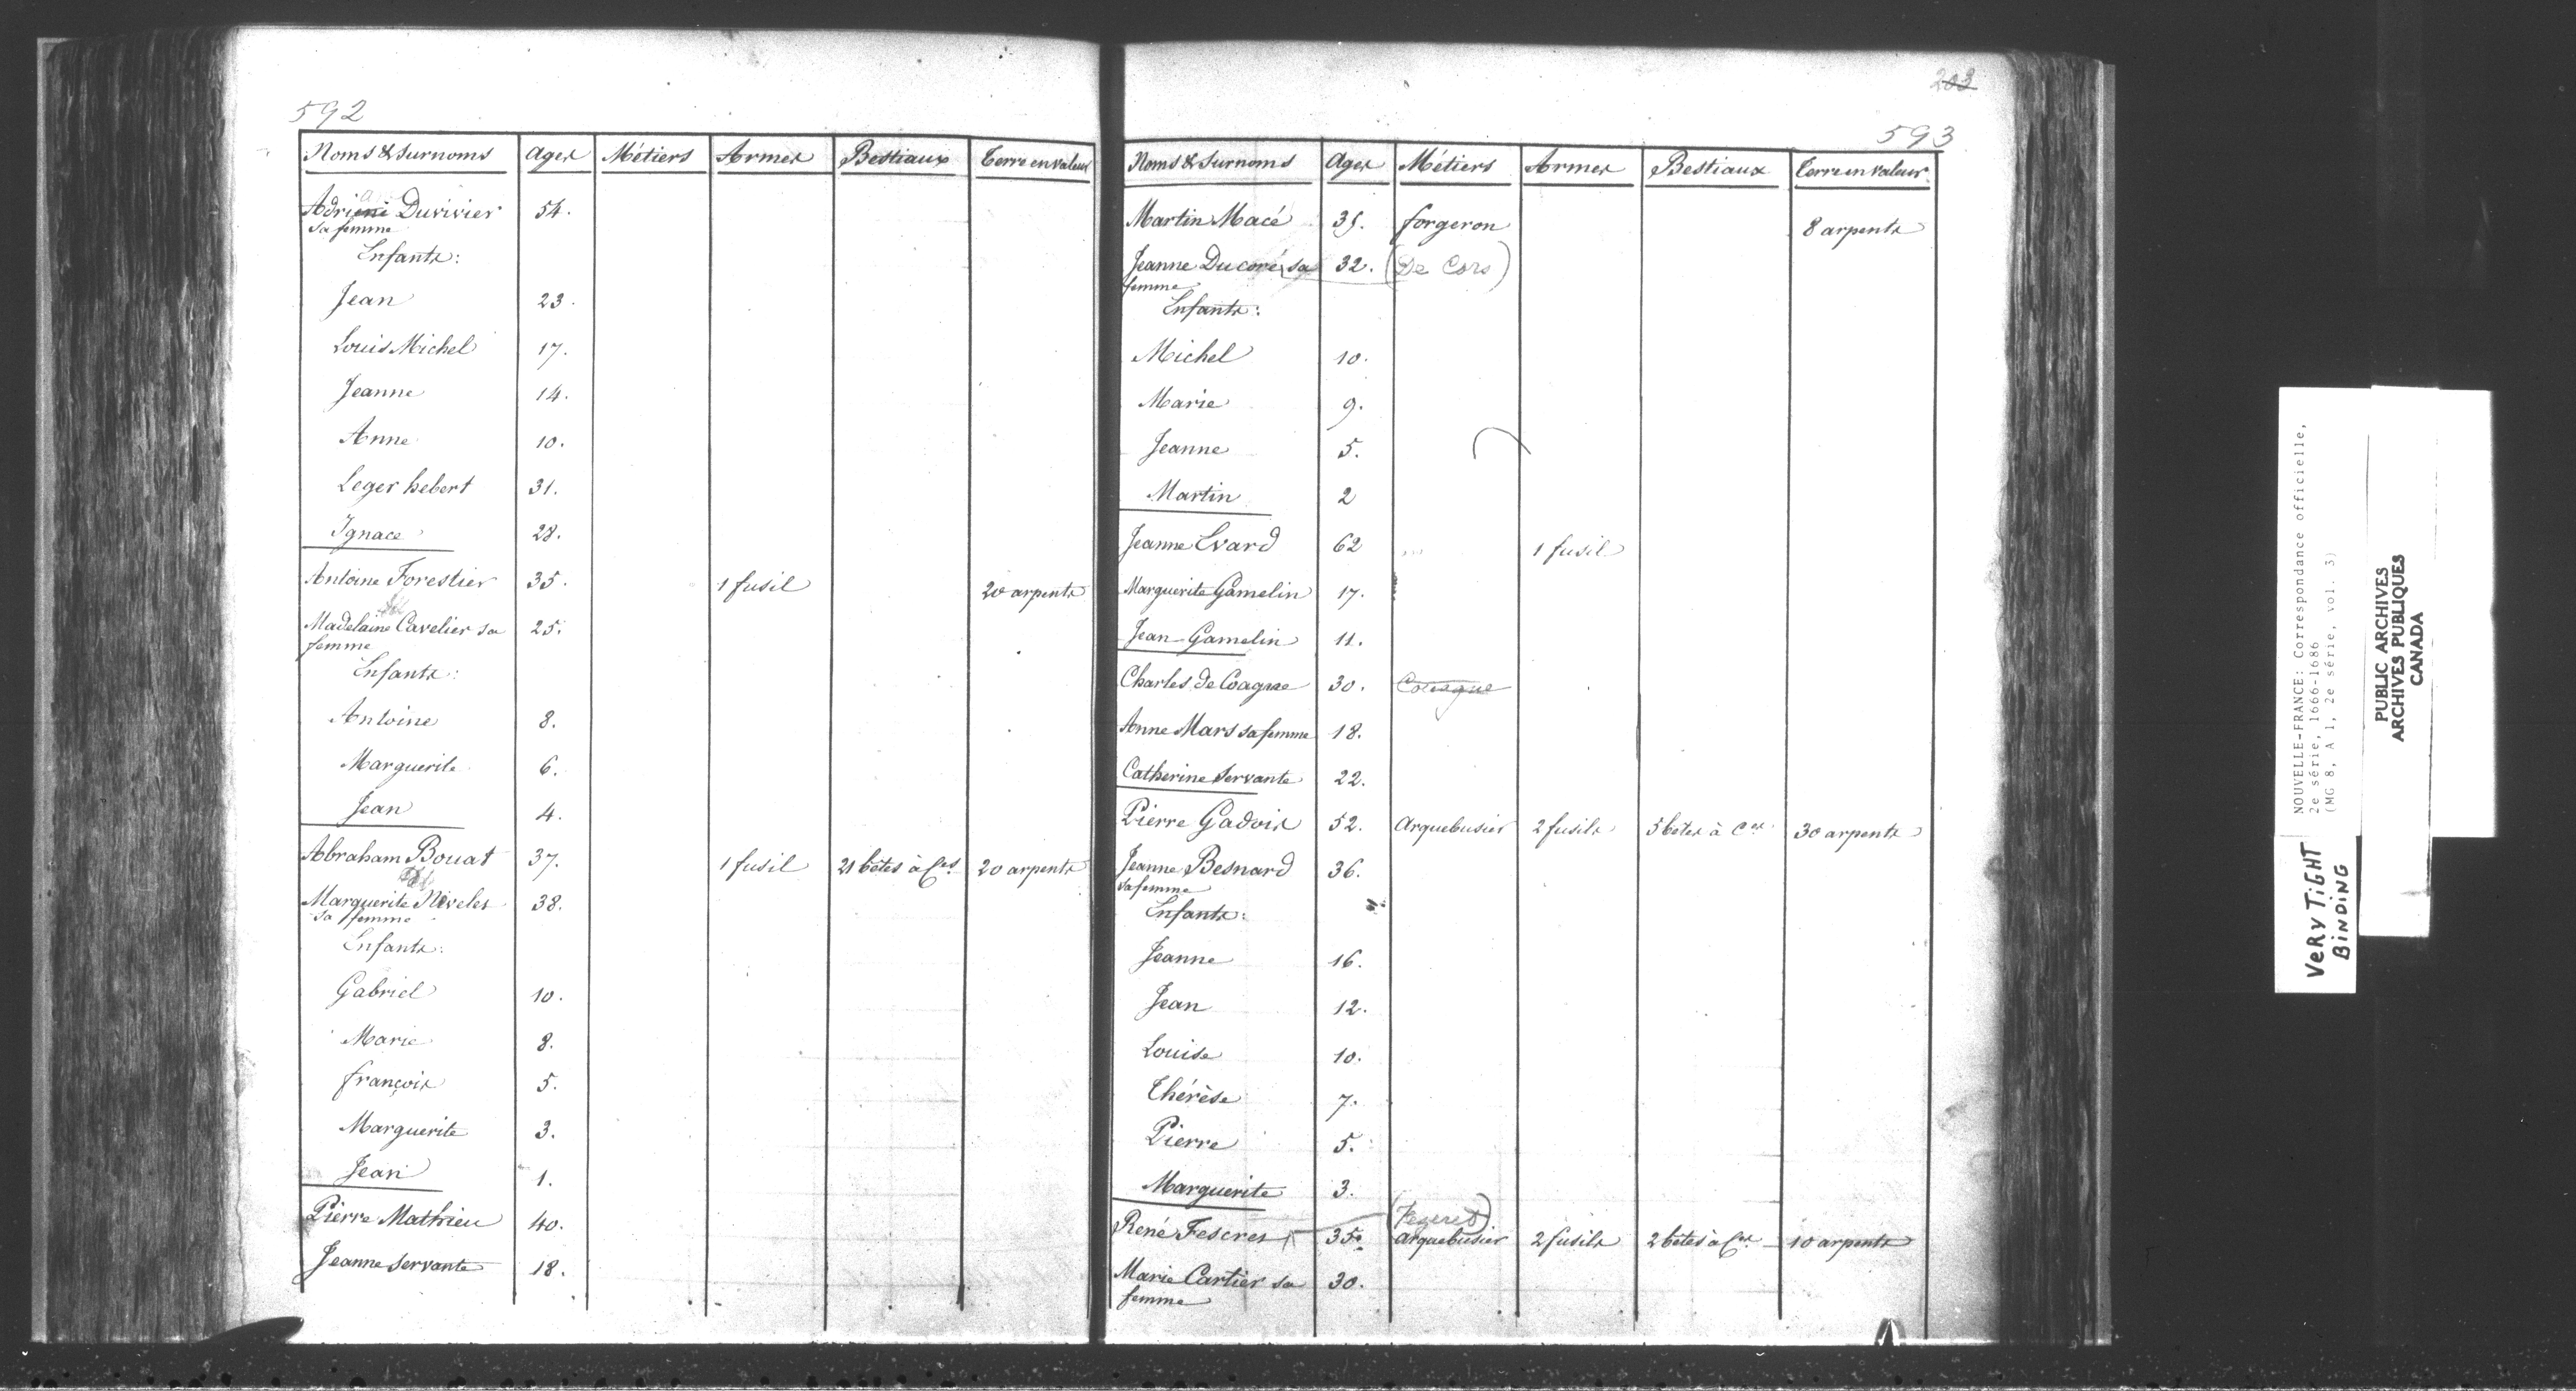 592
Noms & Surnoms Ages Métiers Armes Bestiaux Terre en valeur
Adrieni Duvivier 54.
sa femme
Enfants:
Jean 23.
Louis Michel 17.
Jeanne 14.
Anne 10.
Leger hebert 31.
Ignace 28.
Antoine Forestier 35. 1 fusil 20 arpents
Madelaine Cavelier sa 25.
femme
Enfants:
Antoine 8.
Marguerite 6.
Jean 4.
Abraham Bouat 37. 1 fusil 21 bêtes à Ces. 20 arpents
Marguerite Niveles 38.
sa femme
Enfants:
Gabriel 10.
Marie 8.
françois 5.
Marguerite 3.
Jean 1.
Pierre Mathieu 40.
Jeanne servante 18.
203
593
Noms & Surnoms Ages Métiers Armes Bestiaux Terre en valeur
Martin Macé 35. forgeron 8 arpents
Jeanne Ducoré sa 32. (De Cors)
femme
Enfants:
Michel 10.
Marie 9.
Jeanne 5.
Martin 2
Jeanne Evard 62 1 fusil
Marguerite Gamelin 17.
Jean Gamelin 11.
Charles de Coagne 30.
Anne Mars sa femme 18.
Catherine servante 22.
Pierre Gadois 52. Arquebusier 2 fusils 5 betes à Ces 30 arpents
Jeanne Besnard 36.
sa femme
Enfants:
Jeanne 16.
Jean 12.
Louise 10.
Thérèse 7.
Pierre 5.
Marguerite 3.
(Fezeret)
René Feseres 35. arquebusier 2 fusils 2 bêtes à Ces. 10 arpents
Marie Cartier sa 30.
femme
NOUVELLE-FRANCE: Correspondance officielle,
2e série, 1666-1686
(MG 8, A 1, 2e série, vol. 3)
VERY TIGHT
BINDING
PUBLIC ARCHIVES
ARCHIVES PUBLIQUES
CANADA